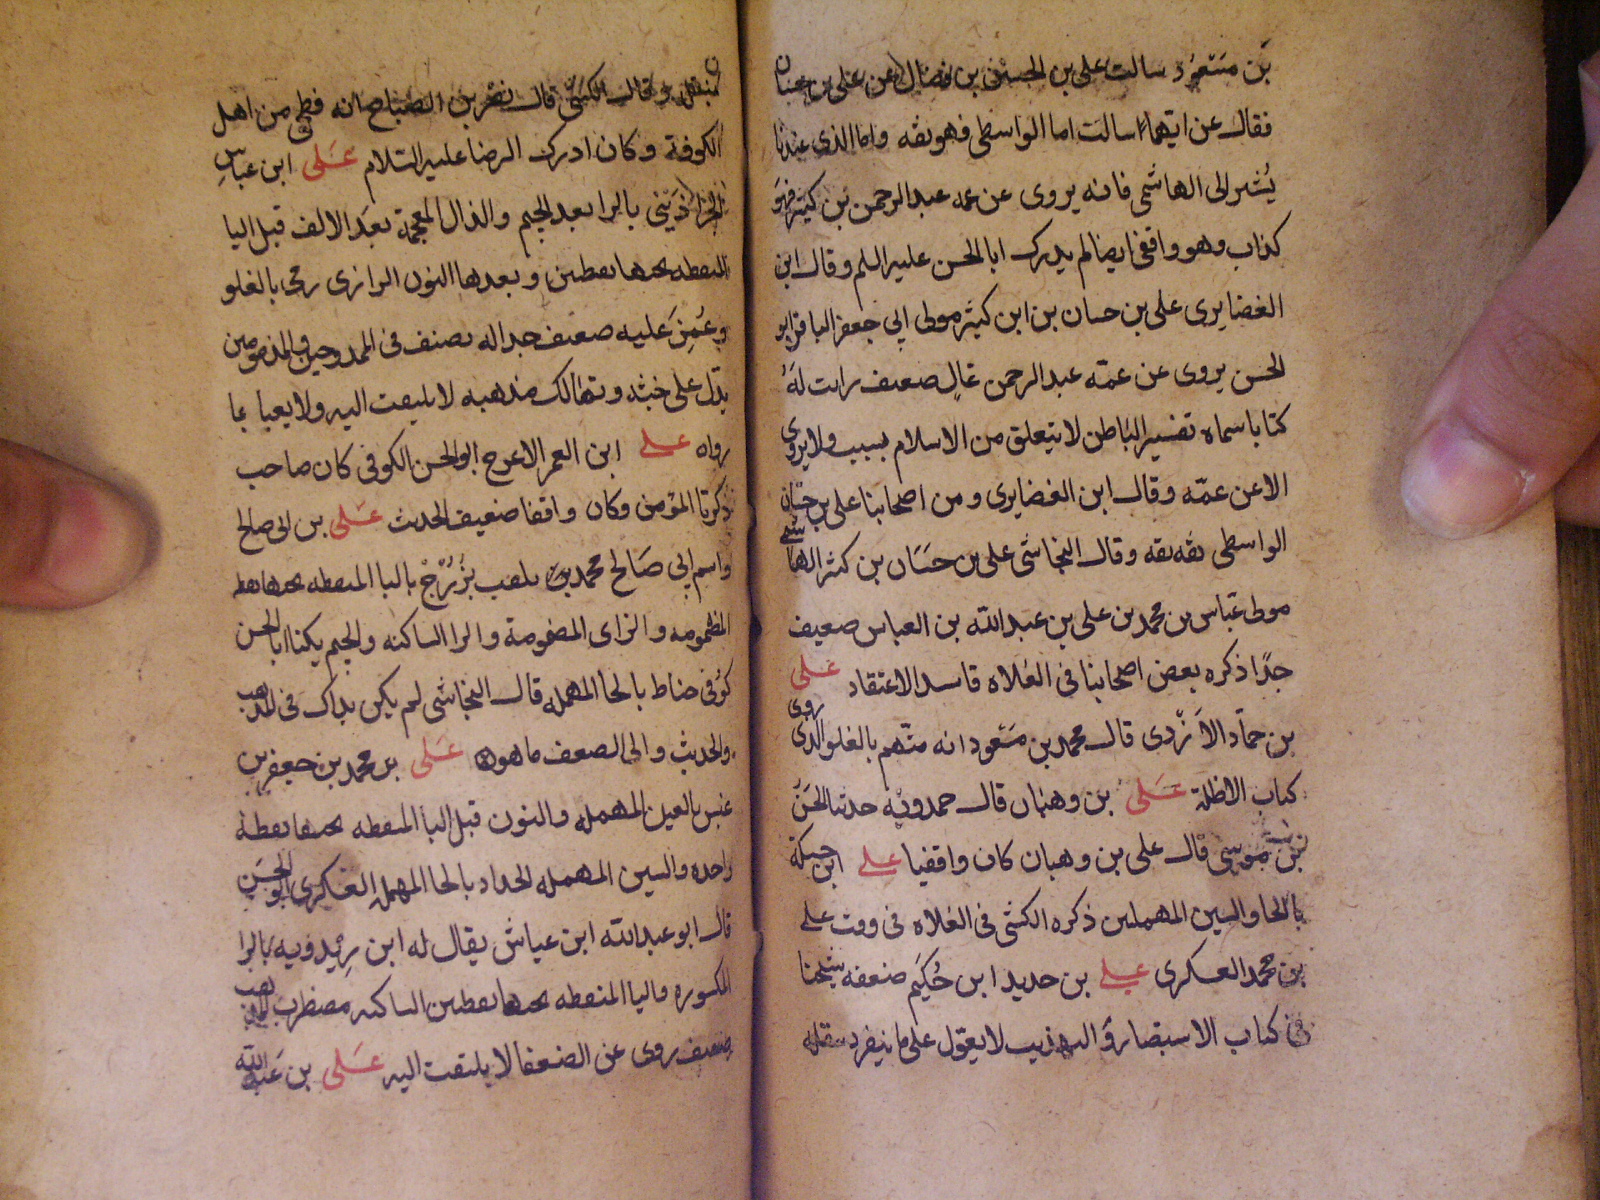 بن مسعود سالت على بن الحسن بن فضال عن على بن حسان
فقال عن ايهما سالت اما الواسطى فهو ثقه واما الذى عندنا
يُشير الى الهاشمى فانه يروى عن عمه عبد الرحمن بن كثير فهو
كذاب وهو واقفى ايضا لم يدرك ابا الحسن عليه السلم وقال ابن
الغضايرى على بن حسان بن ابن كثير مولى ابي جعفر الباقر ابو
الحسن يروى عن عمّه عبد الرحمن غالٍ ضعيف رايت لهُ
كتابا سماه تفسير الباطن لا يتعلق من الاسلام بسبب ولا يروى
الا عن عمّه وقال ابن الغضايرى و من اصحابنا على بن حسان
الواسطى ثقه ثقه وقال النجاشى على بن حسَان بن كثير الهاشمي
مولى عباس بن محمد بن على بن عبد الله بن العباس ضعيف
جدّا ذكره بعض اصحابنا فى الغلاه فاسد الاعتقاد على
بن حمّاد الاَزْدى قال محمد بن مسَعود انه متّهم بالغلو الذى روى
كتاب الاظلة عَلى بن وهبان قال حمدويْه حدثنا الحسَنُ
بن موسى قال على بن وهبان كان واقفيا على ابن حسكة
بالحا والسين المهملين ذكره الكشى فى الغلاه فى وقت على
بن محمد العسكرى على بن حديد ابن حُكَيم ضعفه شيخنا
فى كتاب الاستبصار و التهذيب لا يعوّل على ما ينفرد بنقله
وقال الكشّى قال نصْر بن الصبّاح انه فطحى من اهل
الكوفة وكان ادرك الرضا عليه السلام عَلى ابن عباس
الجراذينى بالرا بعد الجيم والذال المعجمة بعَد الالف قبل اليا
المنقطه تحتها نقطتين وبعدها النون الرازى رمى بالغلو
وغُمِزَ عَليه ضعيف جدا له تصنف فى الممدوحين والمذمومين
يدّل على خبثه وتهالك مذهبه لا يلتفت اليه ولا يعبا بما
رواه على ابن العمر الاعرج ابو الحسن الكوفى كان صاحب
زكريا المؤمن وكان واقفا ضعيف الحديث عَلى بن ابى صالح
واسم ابي صَالح محمد يلقب بزُرْجْ بالبا المنقطه تحتها نقطه
المظمومه والزاى المضمومة والرا الساكنه والجيم يكنا ابا الحسن
كوُفى حناط بالحا المهمله قال النجاشى لم يكن بذاك فى المذهب
والحديث والى الضعف ما هو عَلى بن محمد بن جعفر بن
عنبس بالعين المهمله والنون قبل البا المنقطه تحتها نقطة
واحده والسين المهمله الحداد بالحا المهمله العسكرى ابو الحسَن
قال ابو عبد الله ابن عياش يقال له ابن رِيْدويه بالرا
المكسوره واليا المنقطه تحتها نقطتين الساكنه مضطرب المذهب
ضعيف روى عن الضعفا لا يلتفت اليه عَلى بن عَبد الله